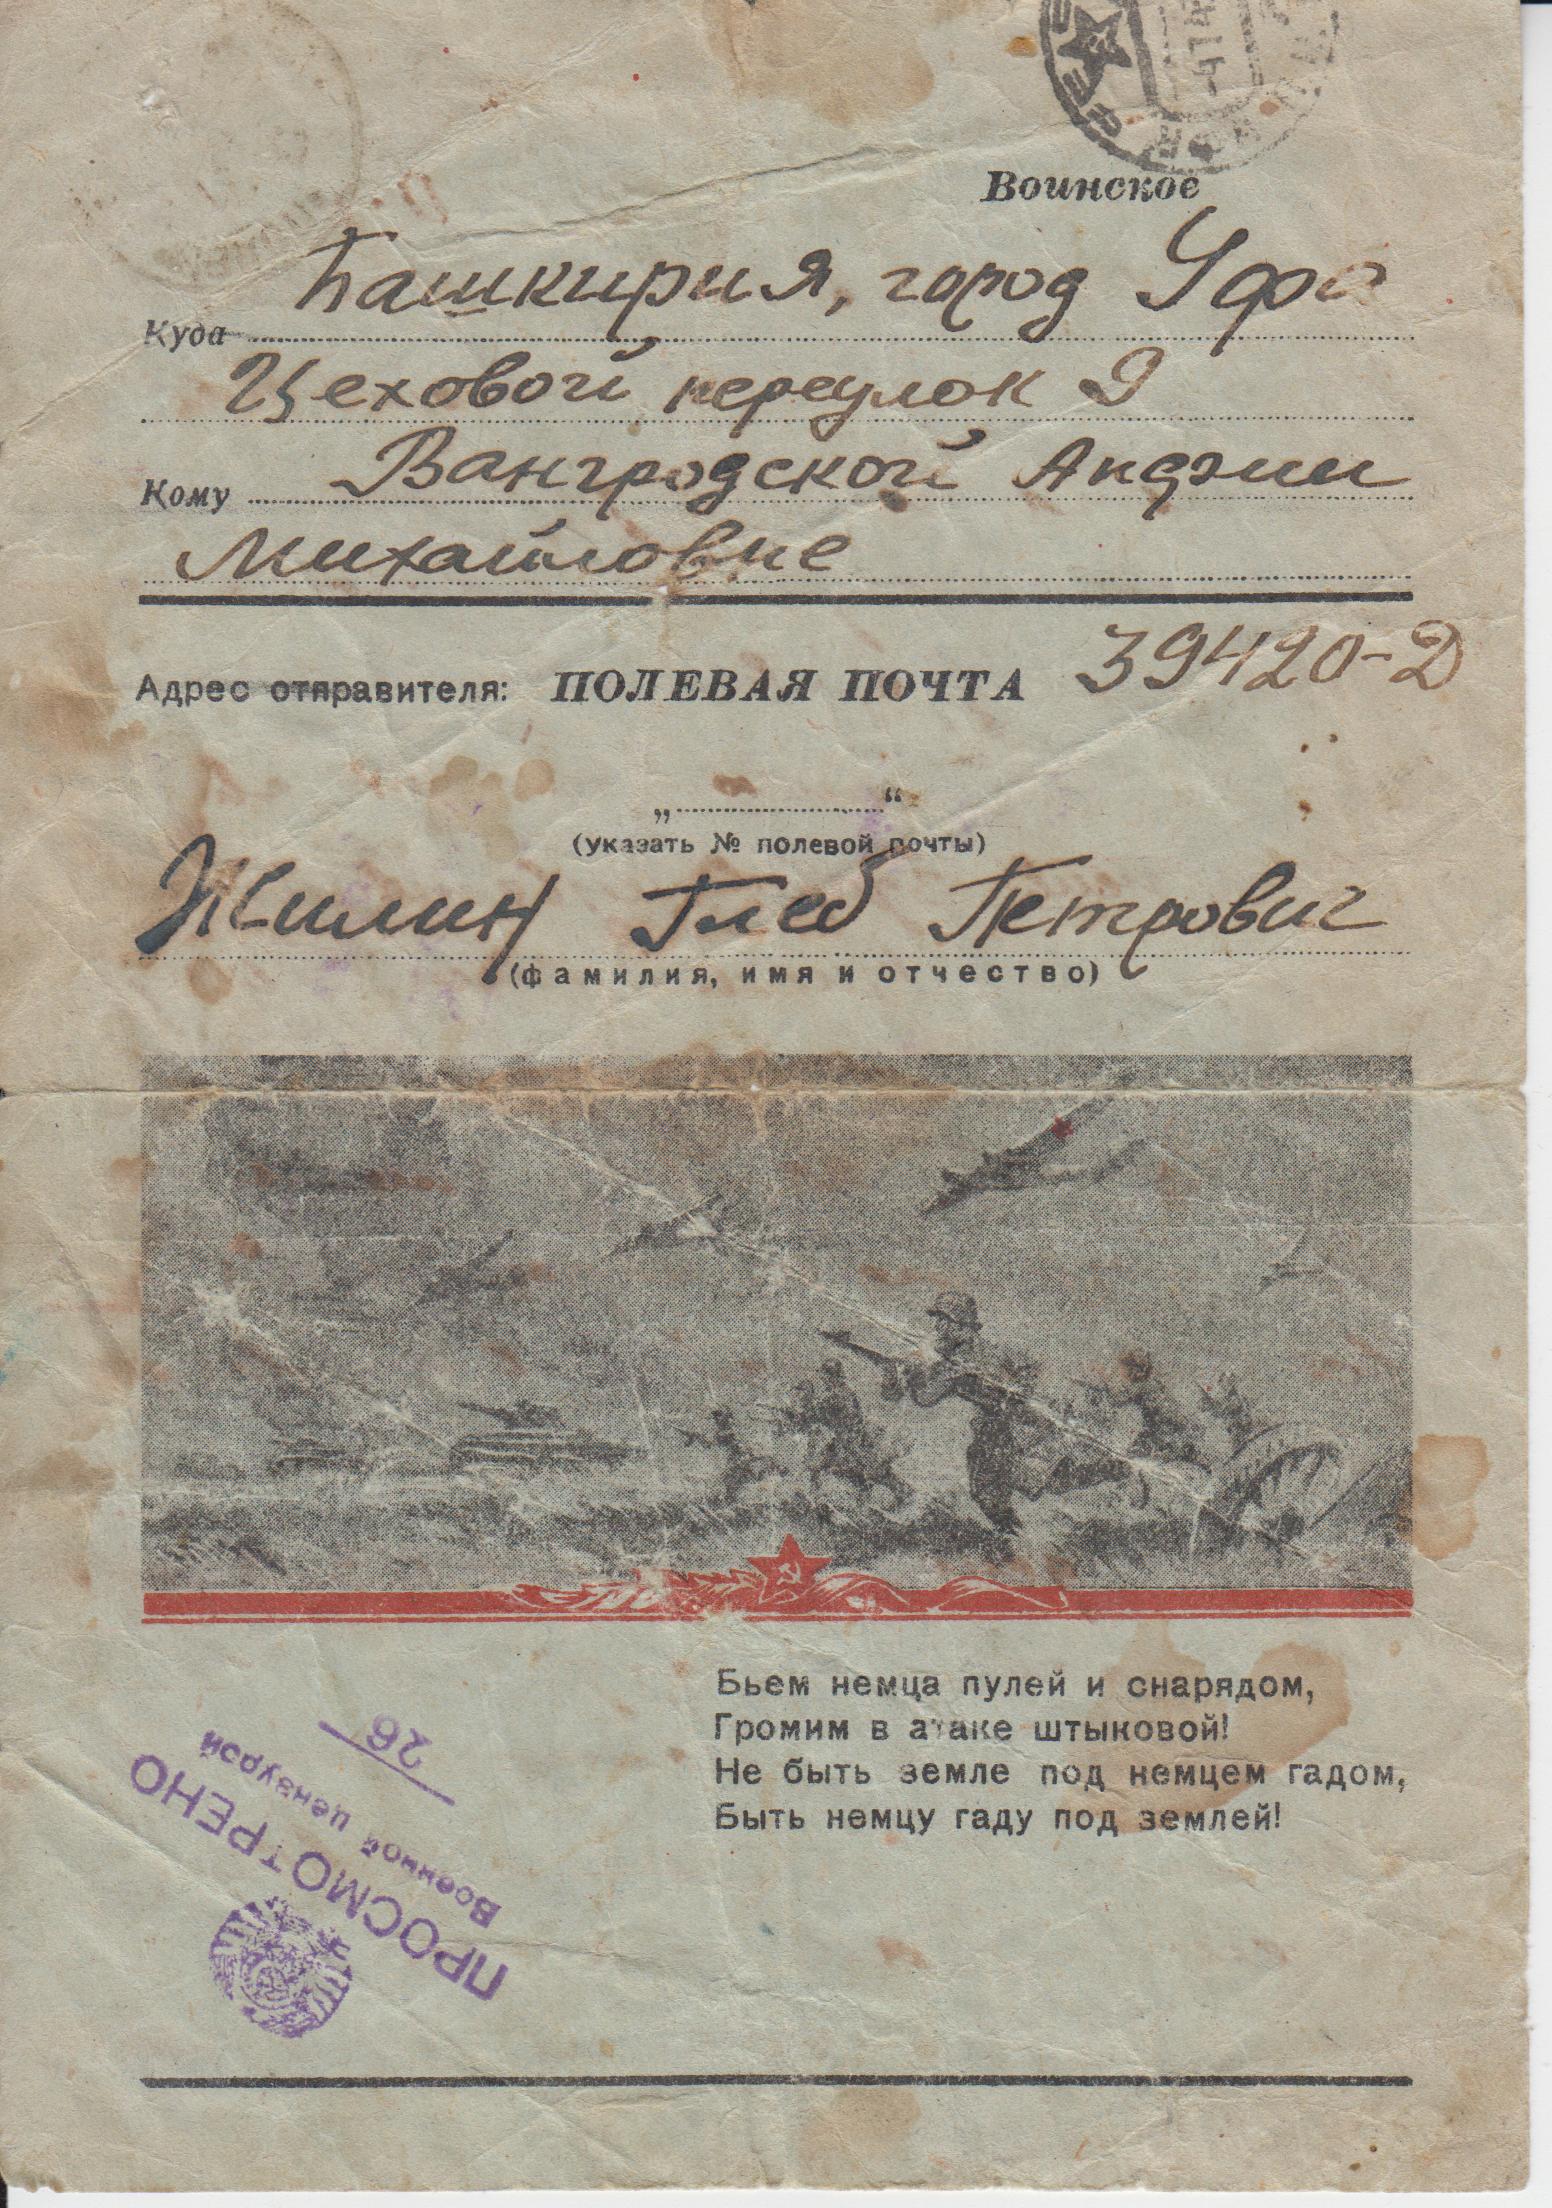 Воинское
Куда Башкирия, город Уфа
Цеховой переулок 9
Кому Вангродской Анэлии
Михайловне
Адрес отправителя: ПОЛЕВАЯ ПОЧТА 39420-Д
„ “
(указать № полевой почты)
Жилин Глеб Петрович
(фамилия, имя и отчество)
Бьем немца пулей и снарядом,
Громим в атаке штыковой!
Не быть земле под немцем гадом,
Быть немцу гаду под землей!
ПРОСМОТРЕНО
Военной цензурой
26